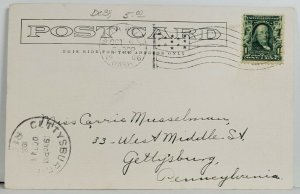 DCS, 5.00
POST CARD
THIS SIDE FOR THE ADDRESS ONLY
Miss Carrie Musselman,
33-West Middle St.
Gettysburg,
Pennsylvania.
GETTYSBURG